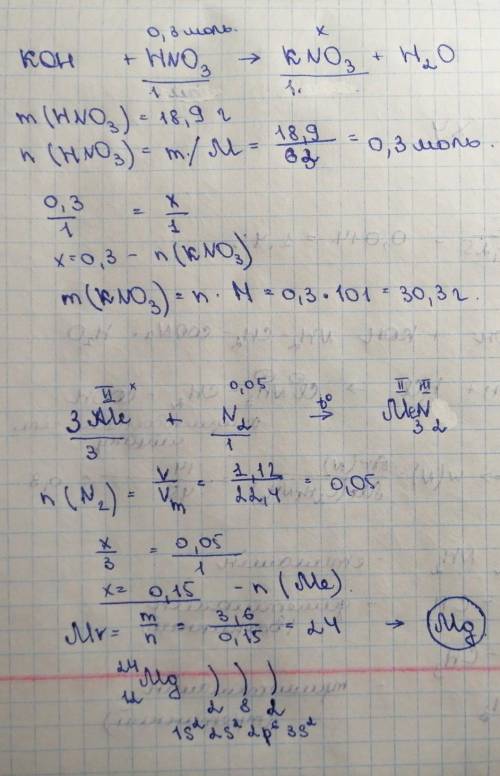 0,3 моль. x
KOH + HNO3 → KNO3 + H2O
1 1.
m(HNO3) = 18,9 г
n(HNO3) = m/M = 18,9/63 = 0,3 моль.
0,3/1 = x/1
x=0,3 - n(KNO3)
m(KNO3) = n · M = 0,3 · 101 = 30,3 г.
II x 0,05 II III
3Me + N2 t° → Me3N2
3 1
n(N2) = V/Vm = 1,12/22,4 = 0,05
x/3 = 0,05/1
x= 0,15 - n(Me).
Mr= m/n = 3,6/0,15 = 24 → Mg
24 12 Mg ) ) )
2 8 2
1s² 2s² 2p⁶ 3s²